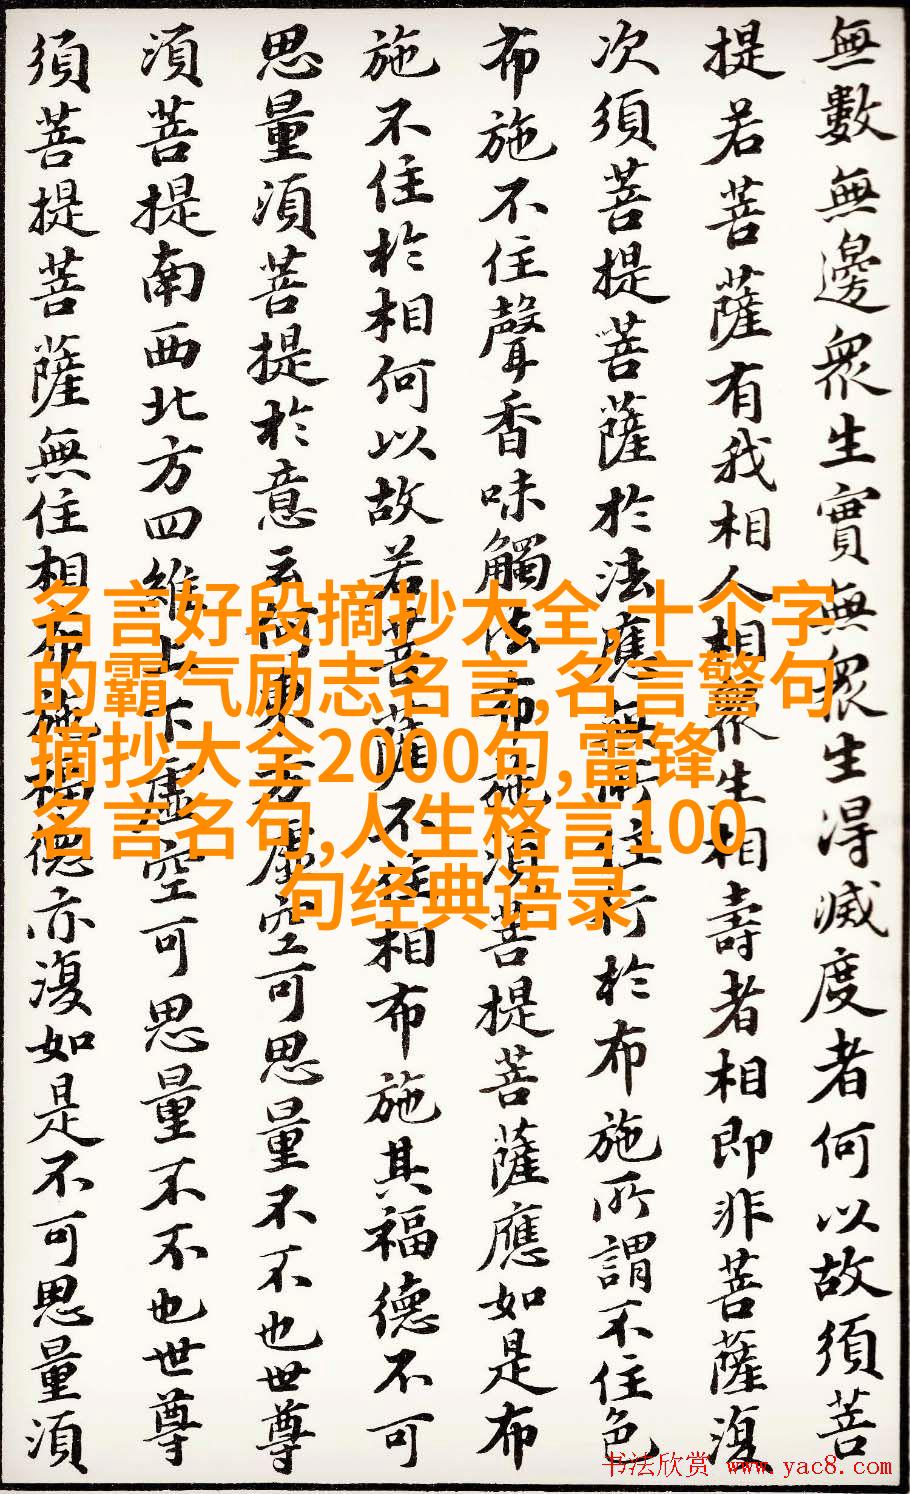 無數無邊眾生實無眾生得滅度者何以故須菩
提若菩薩有我相人相眾生相壽者相即非菩薩復
次須菩提菩薩於法應無所住行於布施所謂不住色
布施不住聲香味觸法布施須菩提菩薩應如是布
施不住於相何以故若菩薩不住相布施其福德不可
思量須菩提於意云何東方虛空可思量不不也世尊
須菩提南西北方四維上下虛空可思量不不也世尊
須菩提菩薩無住相布施福德亦復如是不可思量須
名言好段摘抄大全,十个字
的霸气励志名言,名言警句
摘抄大全2000句,雷锋
名言名句,人生格言100
句经典语录
书法欣赏 www.yac8.com